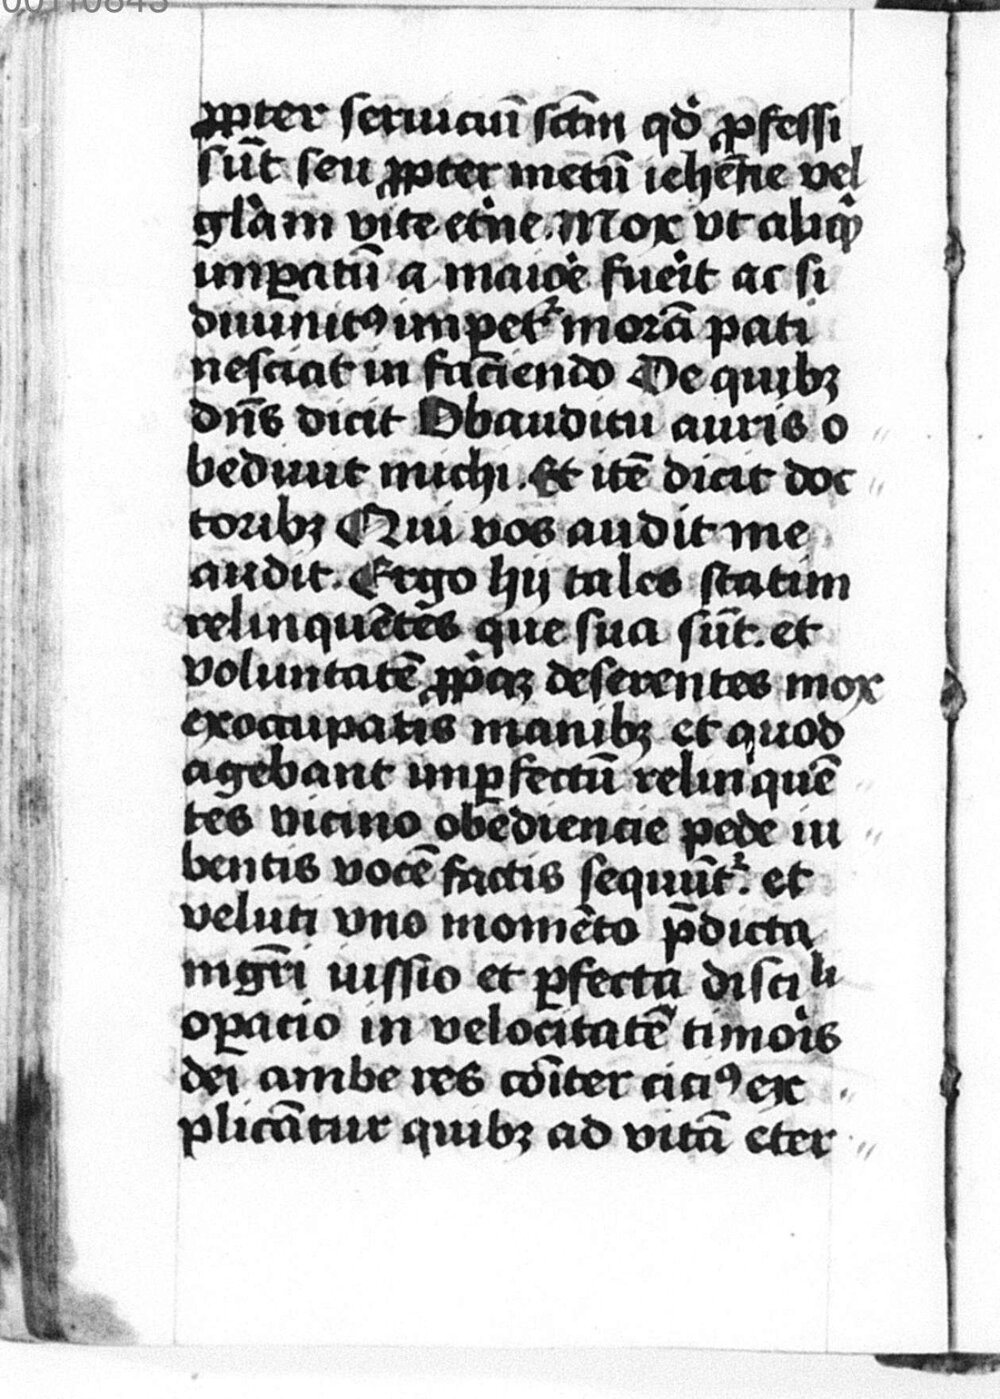 00110843
ꝓpter seruiciū sctm̄ qd̓ ꝓfessi
sūt seu ꝓpter metū iehēne vel
gl̓am vite et̓ne. Mox vt aliqͥd
imꝑatū a maio̓e fue̓it ac si
diuinitꝰ impetᷣ morā pati
nesciat in faciendo De quibꝫ
dn̄s dicit Obauditu auris o
bediuit michi. Et itē dicit doc
toribꝫ Qui vos audit me
audit. Ergo hij tales statim
relinquētes que sua sūt. et
voluntatē ꝓp̓aꝫ deserentes mox
exoccupatis manibꝫ et quod
agebant imꝑfectū relinquē
tes vicino obediencie pede iu
bentis vocē factis sequūtᷣ. et
veluti vno momēto p̄dicta
mgr̄i iussio et ꝑfecta discili
oꝑacio in velocitatē timo̓is
dei ambe res cōiter citiꝰ ex
plicātur quibꝫ ad vitā eter